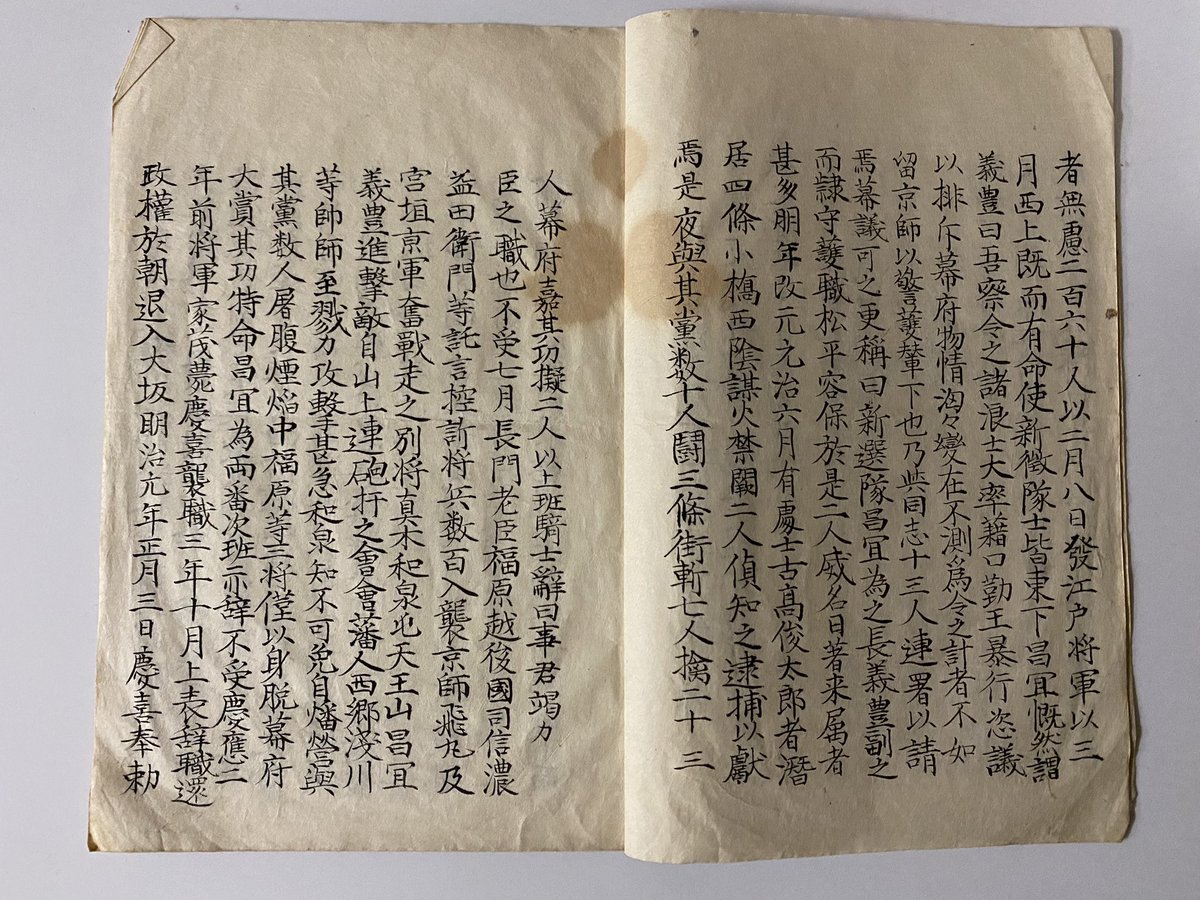 者無慮二百六十人以二月八日發江戸将軍以三
月西上既而有命使新徴隊士皆東下昌冝慨然謂
義豊曰吾察令之諸浪士大率藉口勤王暴行恣議
以排斥幕府物情洶々變在不測爲令之計者不如
留京師以警護輦下也乃與同志十三人連署以請
焉幕議可之更稱曰新選隊昌冝為之長義豊副之
而隷守護職松平容保於是二人威名日著来属者
甚多明年改元元治六月有處士古髙俊太郎者潛
居四條小橋西陰謀火禁闕二人偵知之逮捕以獻
焉是夜與其黨数十人鬪三條街斬七人擒二十三
人幕府嘉其功擬二人以上班騎士辭曰事君竭力
臣之職也不受七月長門老臣福原越後國司信濃
益田衛門等託言控訴将兵数百入襲京師飛丸及
宮垣京軍奮戰走之別将真木和泉屯天王山昌冝
義豊進撃敵自山上連砲扞之會會藩人西郷淺川
等帥師至戮力攻撃甚急和泉知不可免自燔營與
其黨数人屠腹煙焰中福原等三将僅以身脱幕府
大賞其功特命昌冝為両番次班亦辞不受慶應二
年前将軍家茂薨慶喜襲職三年十月上表辞職還
政權於朝退入大坂明治元年正月三日慶喜奉勅